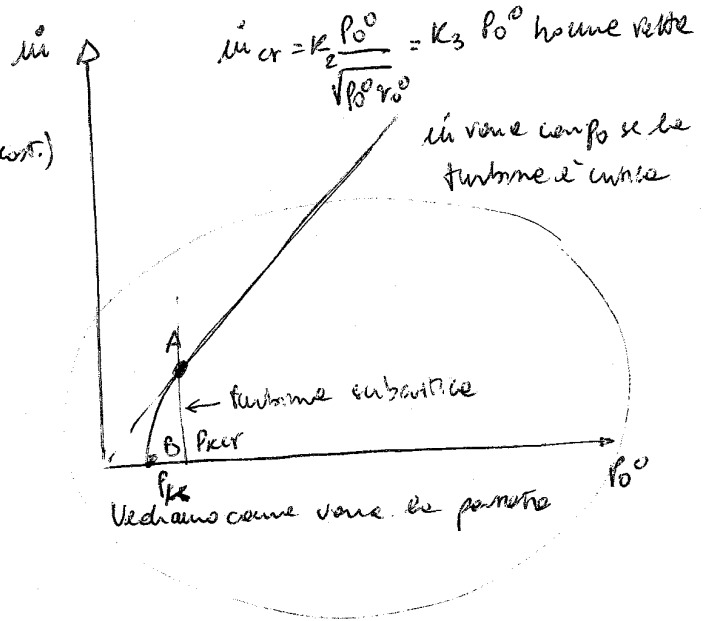 ṁ
ṁ cr = K₂ P₀⁰ / √(P₀⁰ v₀⁰) = K₃ P₀⁰ ho una retta
cost.)
ṁ varia campo se la
turbina è critica
A
← turbina subcritica
B Pkcr
P₀⁰
Pk
Vediamo come varia la portata